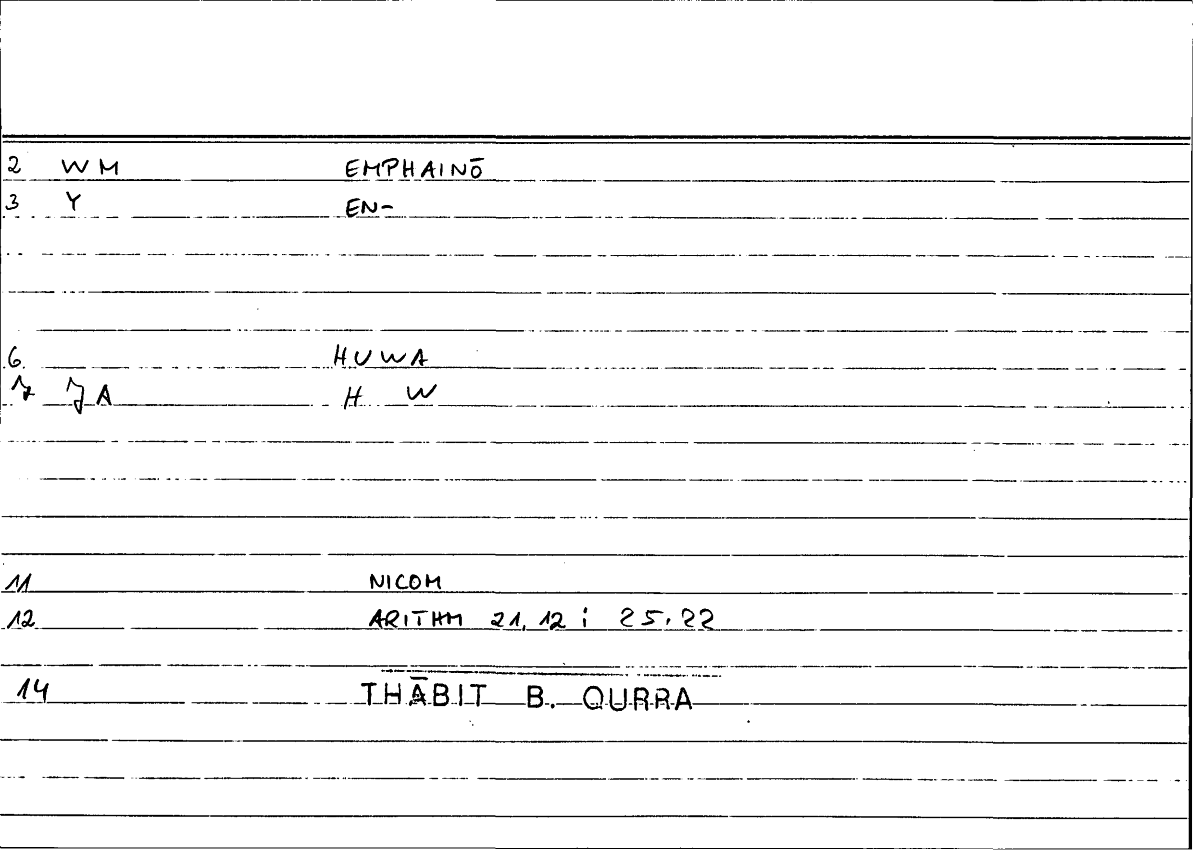 2 WM EMPHAINŌ
3 Y EN-
6 HUWA
7 JA H W
11 NICOM
12 ARITHM 21,12 ; 25,22
14 THĀBIT B. QURRA